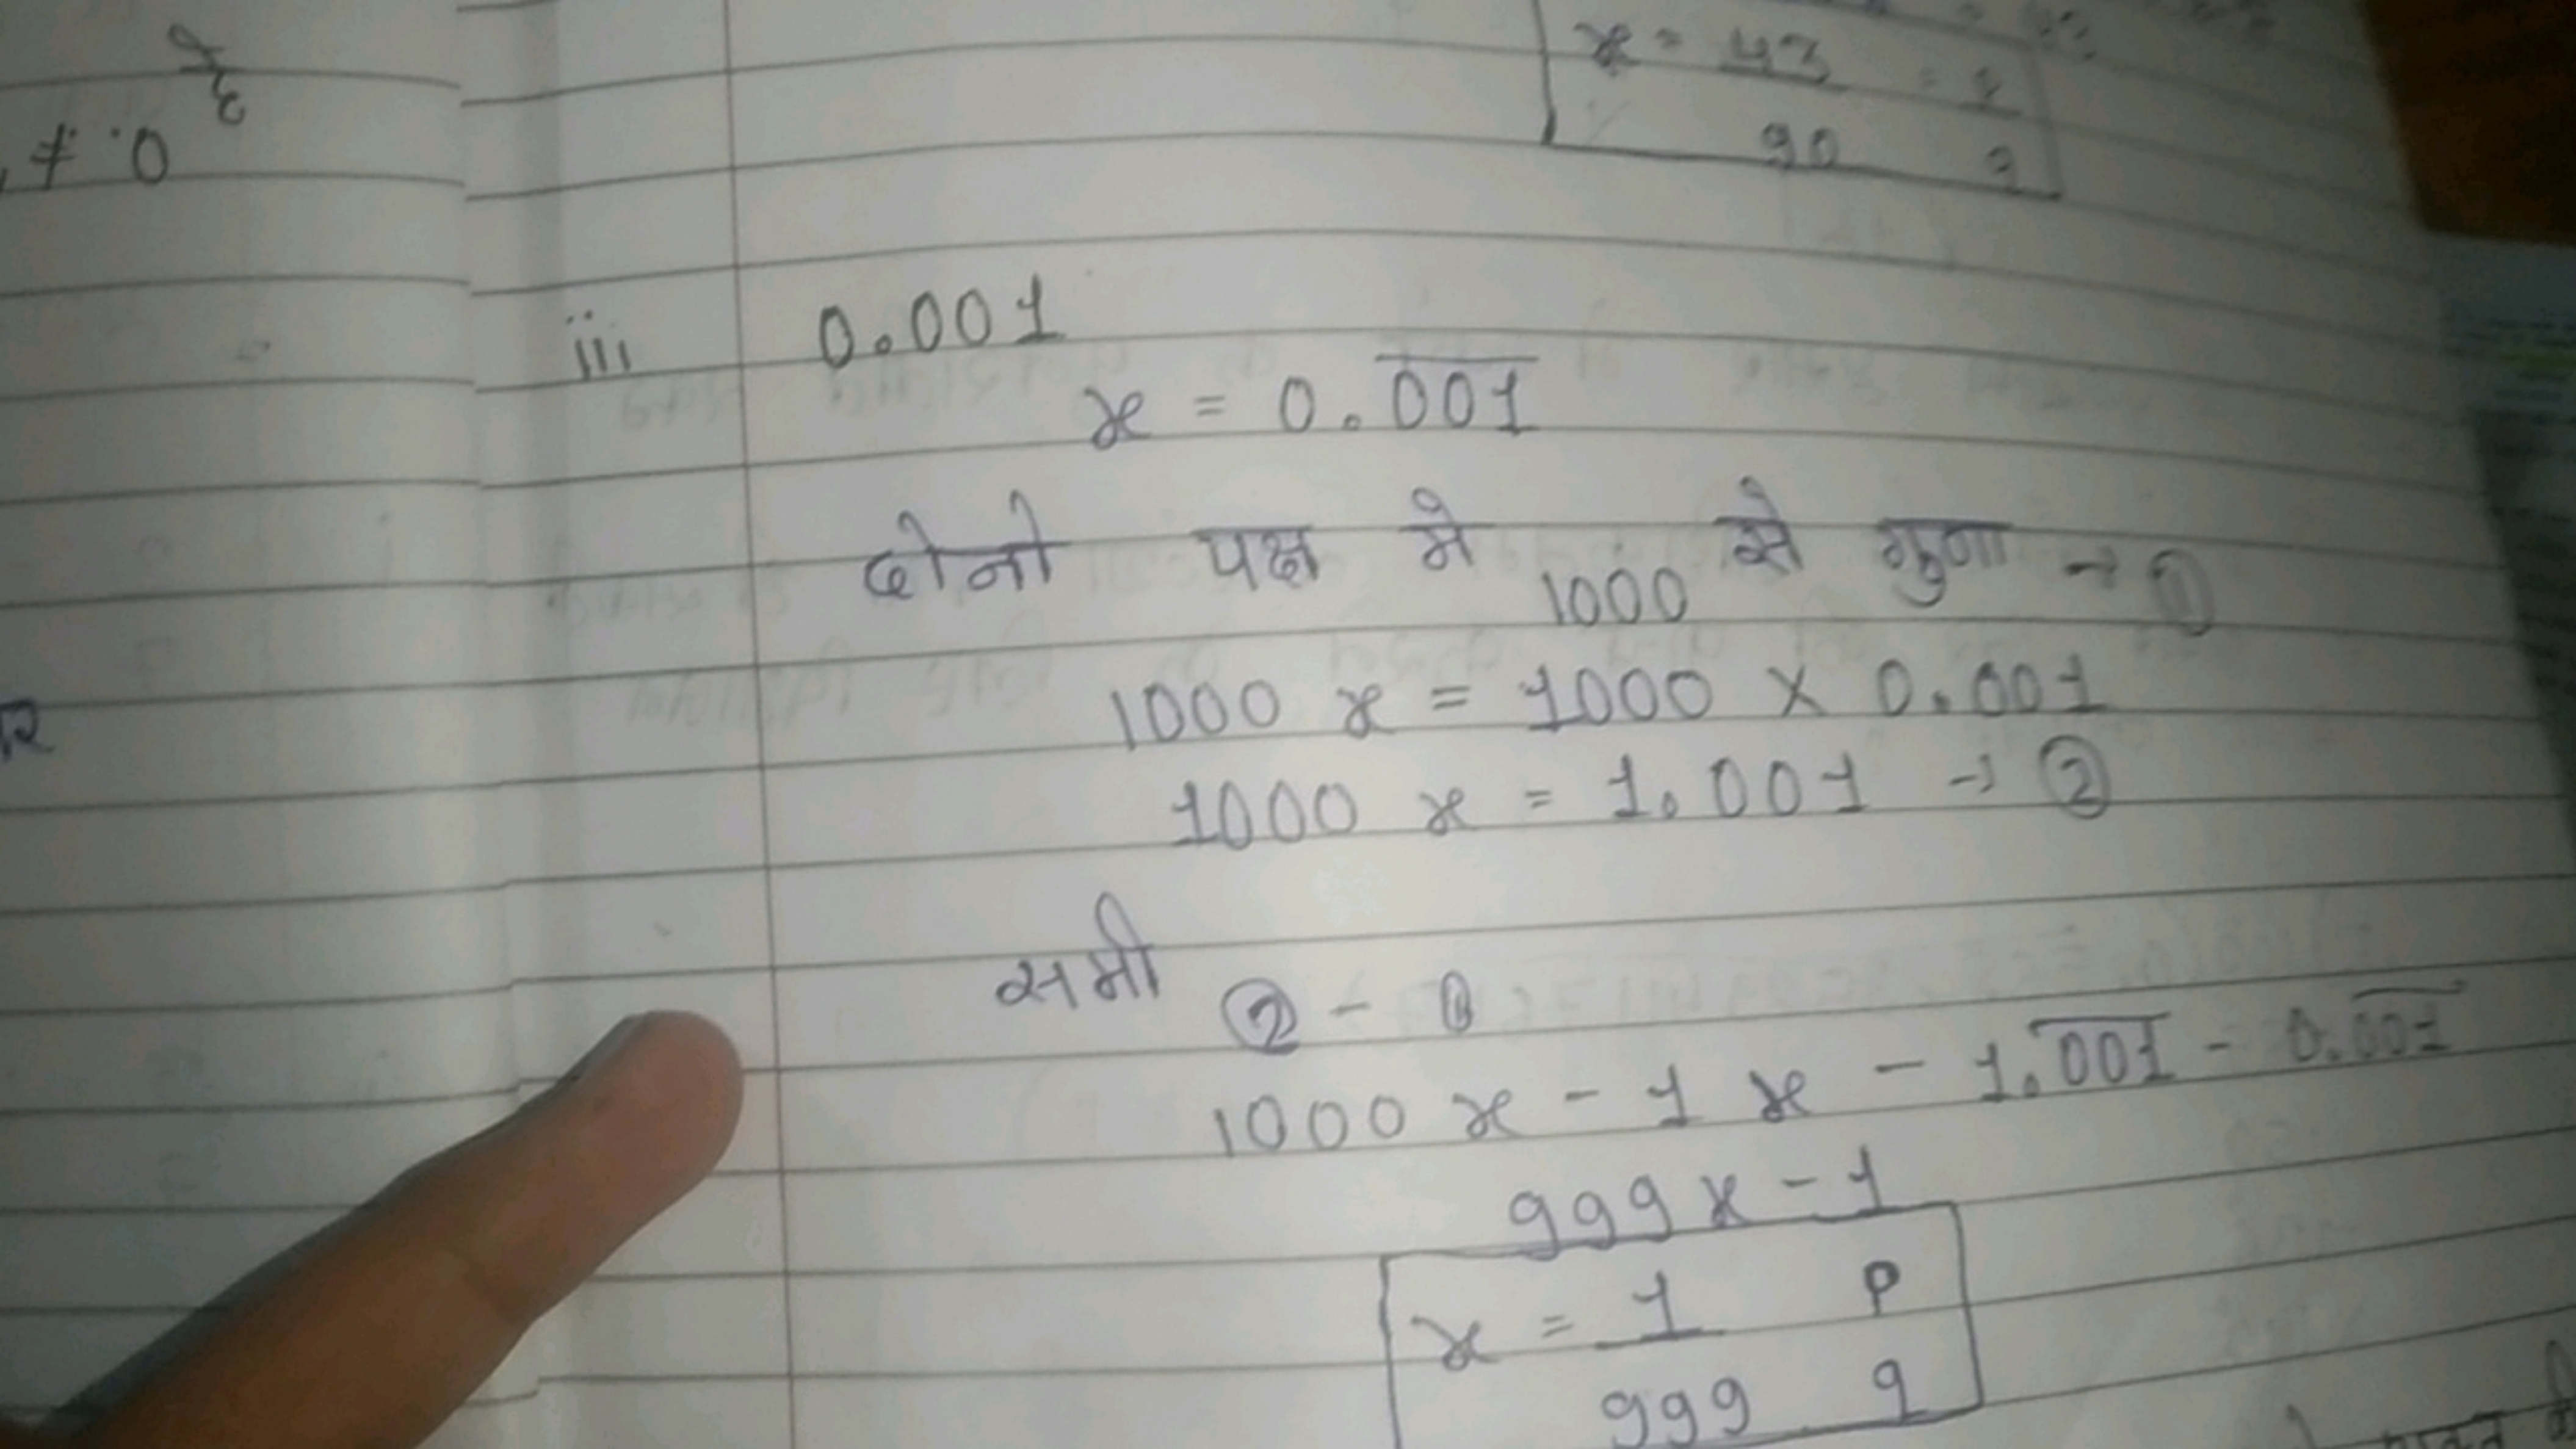 x = 43
90
≠ 0
iii 0.001
x = 0.0̅0̅1̅
दोनो पक्ष मे 1000 से गुणा → ①
1000 x = 1000 × 0.001
1000 x = 1.001 → ②
समी ② - ①
1000 x - 1 x - 1.0̅0̅1̅ - 0.0̅0̅1̅
999 x - 1
x = 1 p
999 q